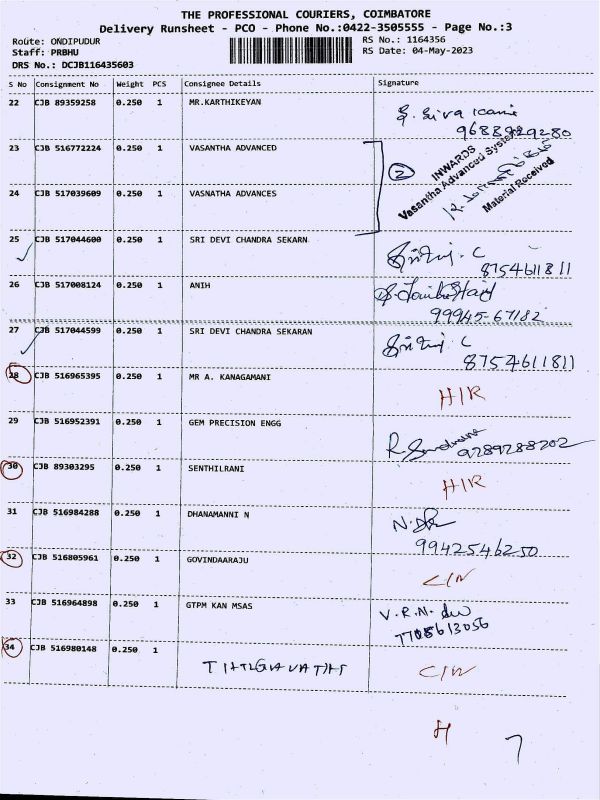 THE PROFESSIONAL COURIERS, COIMBATORE
Delivery Runsheet - PCO - Phone No.:0422-3505555 - Page No.:3
Route: ONDIPUDUR RS No.: 1164356
Staff: PRBHU RS Date: 04-May-2023
DRS No.: DCJB116435603
S No Consignment No Weight PCS Consignee Details Signature
22 CJB 89359258 0.250 1 MR.KARTHIKEYAN
9688929280
23 CJB 516772224 0.250 1 VASANTHA ADVANCED
2
INWARDS
Vasantha Advanced Systems
Material Received
24 CJB 517039609 0.250 1 VASNATHA ADVANCES
25 CJB 517044600 0.250 1 SRI DEVI CHANDRA SEKARN
8754611811
26 CJB 517008124 0.250 1 ANIH
99945-67182
27 CJB 517044599 0.250 1 SRI DEVI CHANDRA SEKARAN
8754611811
28 CJB 516965395 0.250 1 MR A. KANAGAMANI H/R
29 CJB 516952391 0.250 1 GEM PRECISION ENGG
9289288202
30 CJB 89303295 0.250 1 SENTHILRANI H/R
31 CJB 516984288 0.250 1 DHANAMANNI N
9942546250
32 CJB 516805961 0.250 1 GOVINDAARAJU C/N
33 CJB 516964898 0.250 1 GTPM KAN MSAS V.R.N.
7705613056
34 CJB 516980148 0.250 1 C/N
H 7